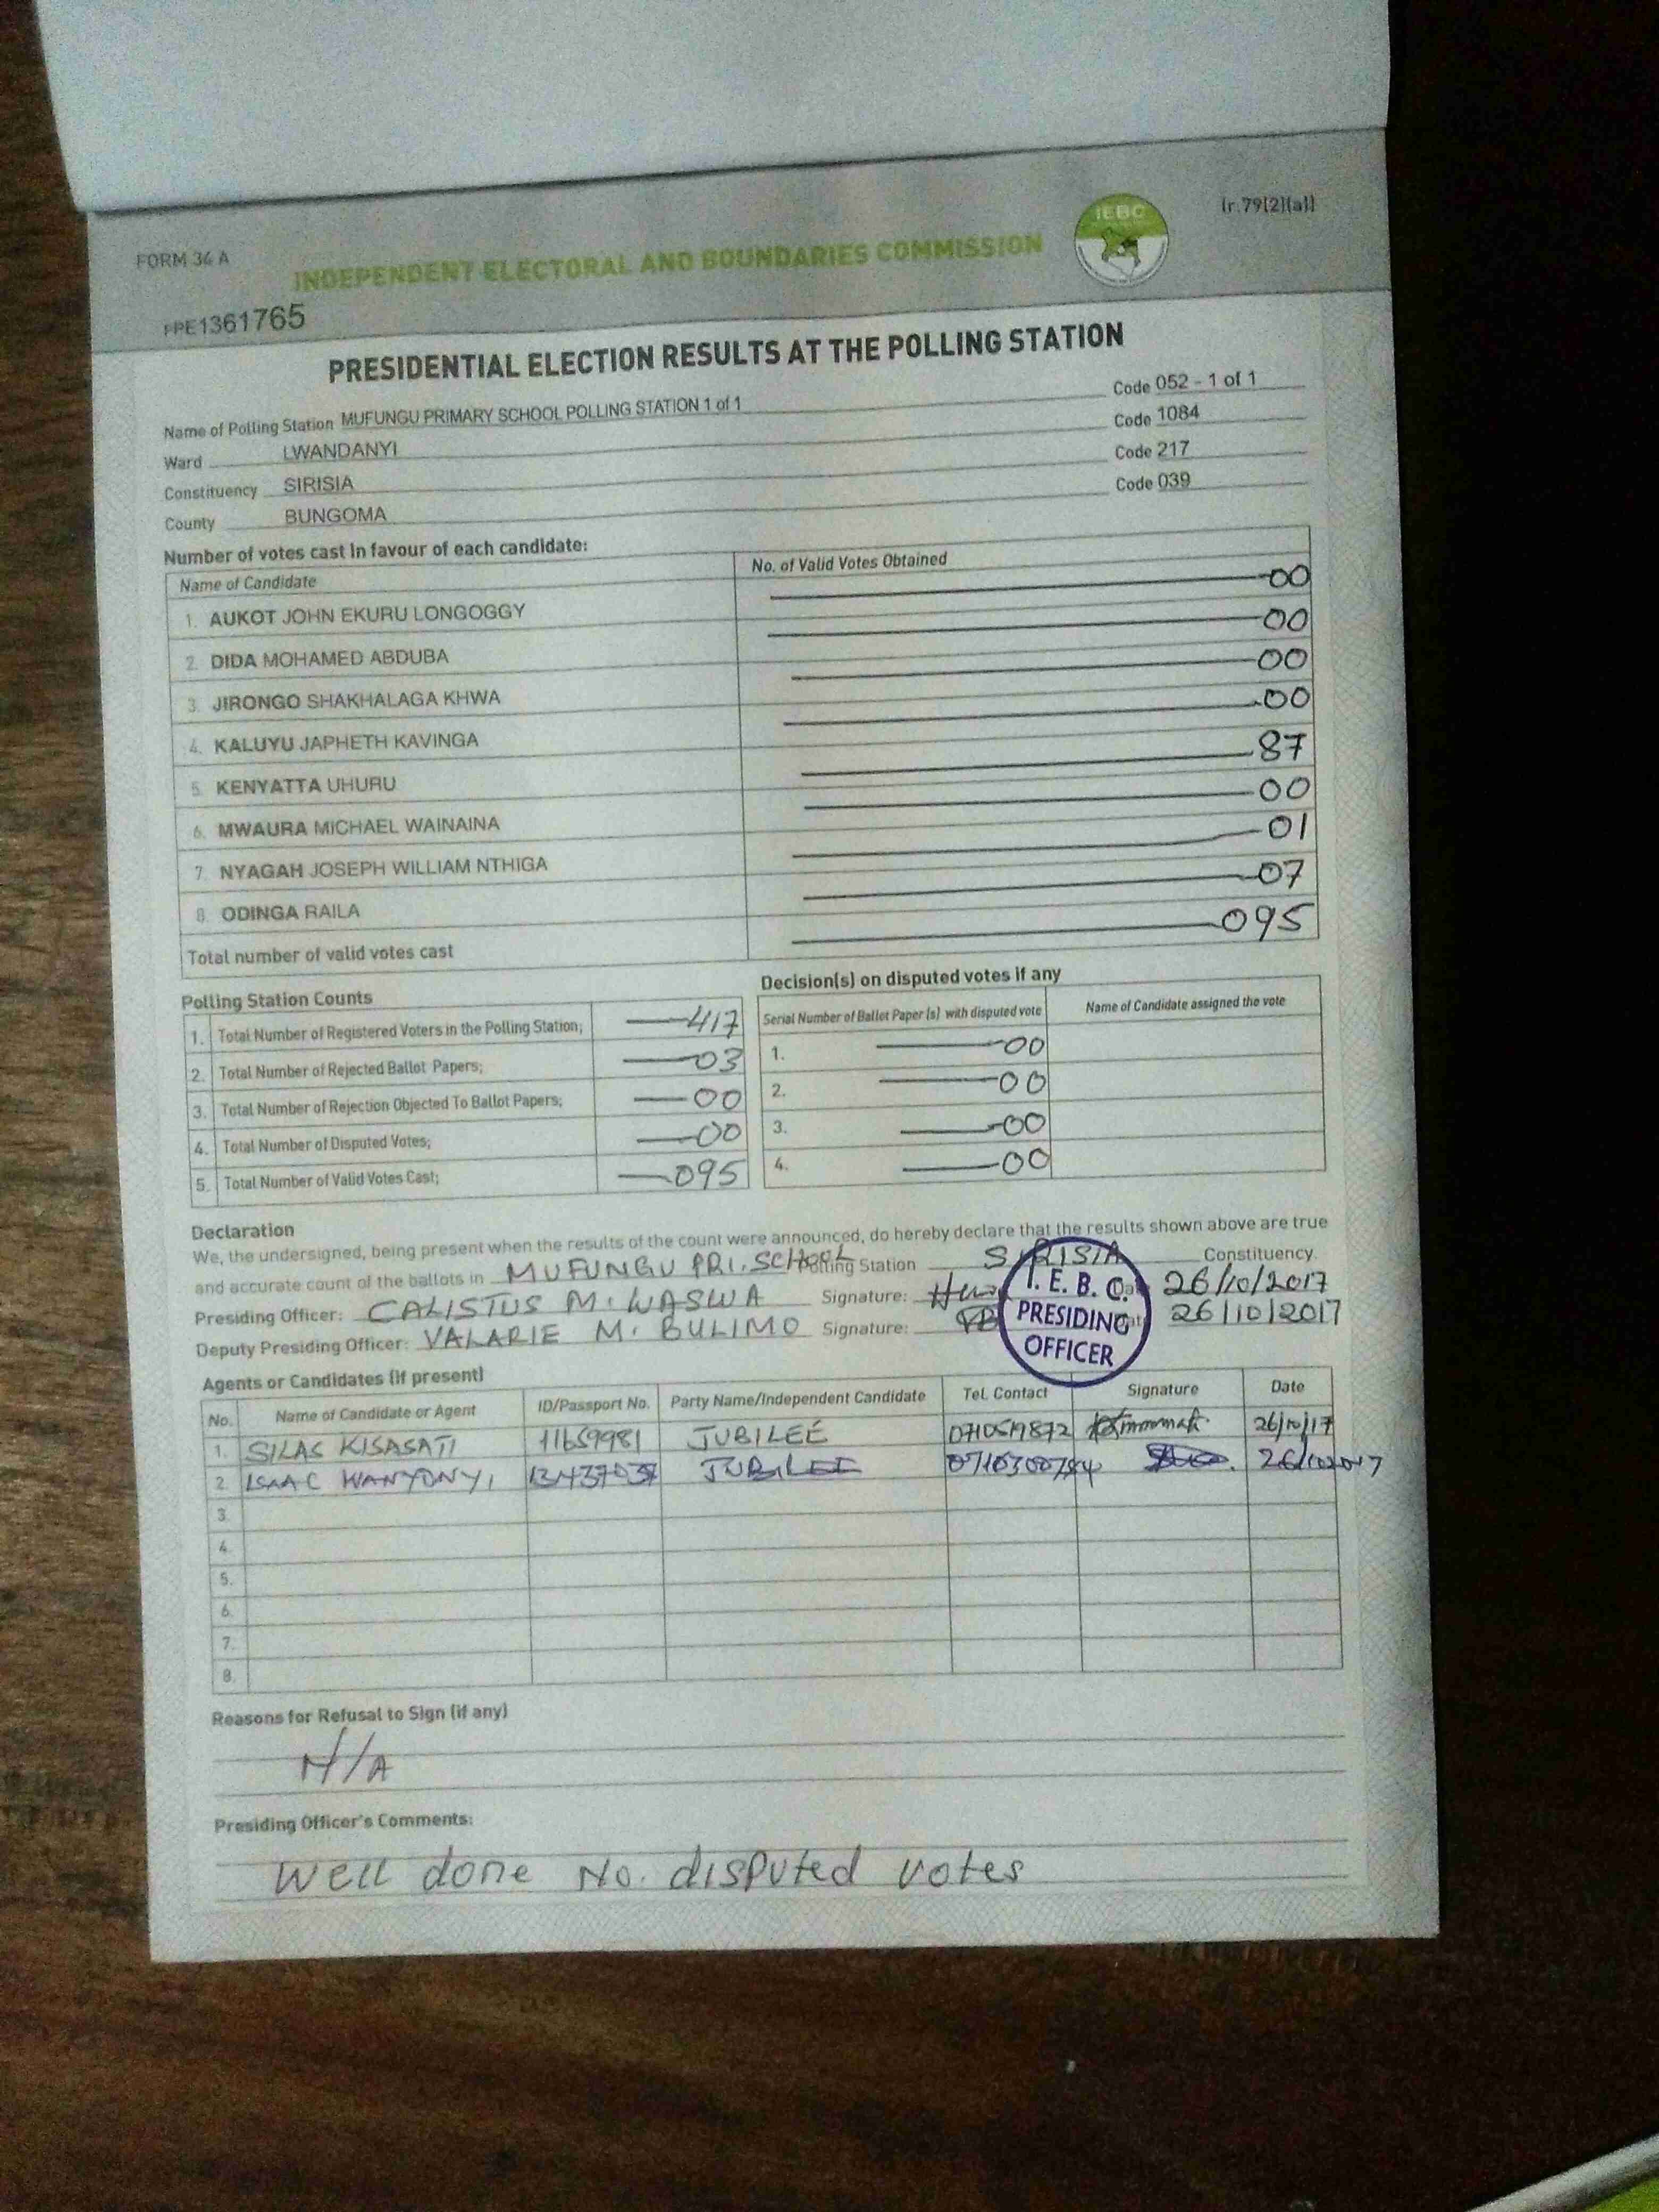 (r.79(2)(a))
FORM 34 A
INDEPENDENT ELECTORAL AND BOUNDARIES COMMISSION
IEBC
PPE1361765
PRESIDENTIAL ELECTION RESULTS AT THE POLLING STATION
Name of Polling Station MUFUNGU PRIMARY SCHOOL POLLING STATION 1 of 1 Code 052 - 1 of 1
Ward LWANDANYI Code 1084
Constituency SIRISIA Code 217
County BUNGOMA Code 039
Number of votes cast in favour of each candidate:
Name of Candidate No. of Valid Votes Obtained
1. AUKOT JOHN EKURU LONGOGGY 00
2. DIDA MOHAMED ABDUBA 00
3. JIRONGO SHAKHALAGA KHWA 00
4. KALUYU JAPHETH KAVINGA 00
5. KENYATTA UHURU 87
6. MWAURA MICHAEL WAINAINA 00
7. NYAGAH JOSEPH WILLIAM NTHIGA 01
8. ODINGA RAILA 07
Total number of valid votes cast 095
Polling Station Counts
1. Total Number of Registered Voters in the Polling Station; 417
2. Total Number of Rejected Ballot Papers; 03
3. Total Number of Rejection Objected To Ballot Papers; 00
4. Total Number of Disputed Votes; 00
5. Total Number of Valid Votes Cast; 095
Decision(s) on disputed votes if any
Serial Number of Ballot Paper (s) with disputed vote Name of Candidate assigned the vote
1. 00
2. 00
3. 00
4. 00
Declaration
We, the undersigned, being present when the results of the count were announced, do hereby declare that the results shown above are true
and accurate count of the ballots in MUFUNGU PRI. SCHOOL Polling Station SIRISIA Constituency.
Presiding Officer: CALISTUS M. WASWA Signature: Date 26/10/2017
Deputy Presiding Officer: VALARIE M. BULIMO Signature: Date 26/10/2017
I. E. B. C.
PRESIDING
OFFICER
Agents or Candidates (if present)
No. Name of Candidate or Agent ID/Passport No. Party Name/Independent Candidate Tel. Contact Signature Date
1. SILAS KISASATI 11659981 JUBILEE 0710519872 26/10/17
2. ISAAC WANYONYI JUBILEE 26/10/2017
3.
4.
5.
6.
7.
8.
Reasons for Refusal to Sign (if any)
N/A
Presiding Officer's Comments:
Well done No. disputed votes